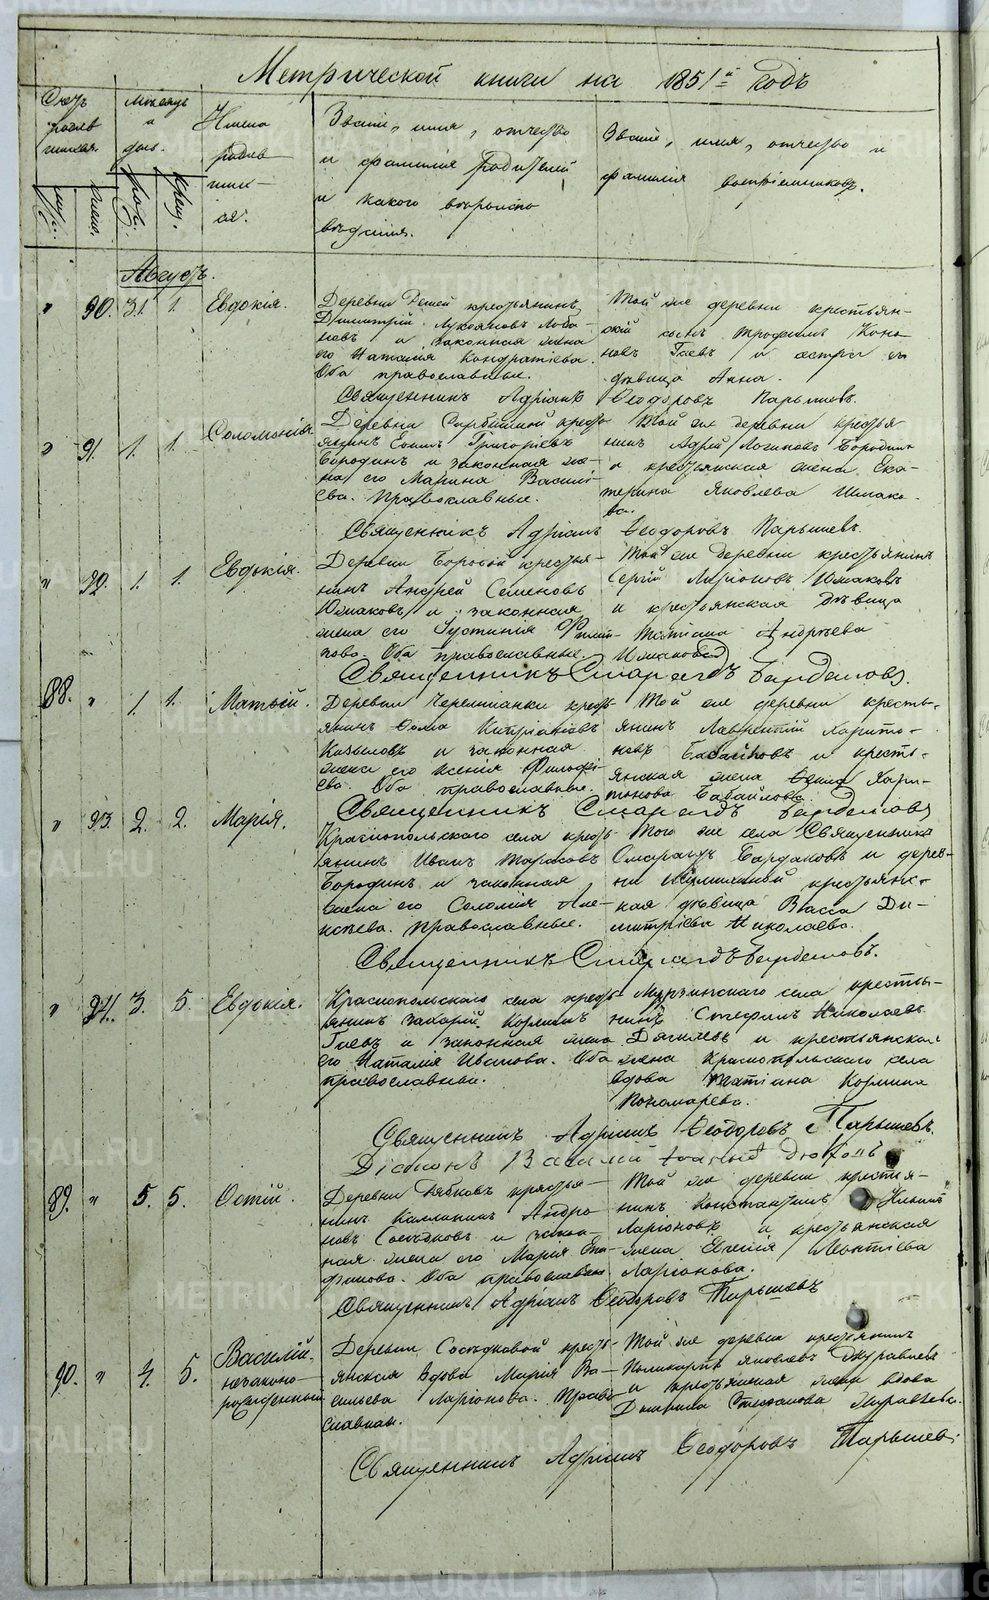 Метрической книги на 1851й годъ
Счетъ родив шихся.
муж. жен.
Мѣсяцъ и день.
рож. крещ.
Имена родив шихся.
Званіе, имя, отчество
и фамилія родителей
и какого вѣроиспо
вѣданія.
Званіе, имя, отчество и
фамилія воспріемниковъ.
Августъ.
" 90. 31 1. Евдокія.
Деревни крестьянинъ
Димитрій Лукояновъ Лоба
новъ и законная жена
его Наталія Кондратіева.
Оба православные.
Той же деревни крестьян-
скій сынъ Трофимъ Коно
новъ Гаевъ и сестра
дѣвица Анна.
Священникъ Адріанъ Ѳеодоровъ Парышевъ.
" 91. 1. 1. Соломонія.
Деревни кресть
янинъ Григорьевъ
Бородинъ и законная же-
на его Марина Василі-
ева. Православные.
Той же деревни крестья
нинъ Логиновъ Бородинъ
и крестьянская жена Ека-
терина Яковлева
ва.
Священникъ Адріанъ Ѳеодоровъ Парышевъ.
" 92. 1. 1. Евдокія.
Деревни крестья-
нинъ Андрей Семеновъ
Южаковъ и законная
жена его Іустинія Филип-
пова. Оба православные.
Той же деревни крестьянинъ
Сергій Ларіоновъ Южаковъ
и крестьянская дѣвица
Татіана Андреева
Священникъ Смарагдъ Бардаковъ.
88. " 1. 1. Матѳій.
Деревни Черемшанки кресть
янинъ Ѳома Кипріановъ
и законная
жена его Ксенія Филофі-
ева. Оба православные.
Той же деревни кресть-
янинъ Лаврентій Харито-
новъ Бабайловъ и кресть-
янская жена Хари-
тонова Бабайлова.
Священникъ Смарагдъ Бардаковъ
" 93. 2. 2. Марія.
Краснопольскаго села кресть
янинъ Иванъ Тарасовъ
Бородинъ и законная
жена его Соломія Але-
ксѣева. Православные.
Того же села Священникъ
Смарагдъ Бардаковъ и дерев-
ни крестьянс-
кая дѣвица Васса Ди-
митріева Николаева.
Священникъ Смарагдъ Бардаковъ.
" 94. 3. 5. Евдокія.
Краснопольскаго села кресть
янинъ Захарій Козминъ
Гаевъ и законная жена
его Наталія Иванова. Оба
православные.
Мурзинскаго села кресть-
нинъ Стефанъ Николаевъ
Дягилевъ и крестьянская
жена Краснопольскаго села
вдова Татіана Козмина
Пономарева.
Священникъ Адріанъ Ѳеодоровъ Парышевъ.
Діаконъ Василій
89. " 5. 5. Остій.
Деревни крестья-
нинъ Каллиникъ Андро
новъ Сосѣдковъ и закон
ная жена его Марія
фимова. Оба православные
Той же деревни крестья-
нинъ Константинъ
Ларіоновъ и крестьянская
жена Евгенія Леонтіева
Ларіонова.
Священникъ Адріанъ Ѳеодоровъ Парышевъ
90. " 4. 5. Василій. незаконо рожденный
Деревни Сосѣдковой кресть
янская вдова Марія Ва-
сильева Ларіонова. Право
славная.
Той же деревни крестьянинъ
Поликарпъ Яковлевъ Журавлевъ
и крестьянская жена вдова
Домника Стефанова Журавлева.
Священникъ Адріанъ Ѳеодоровъ Парышевъ.
METRIKI.GASO-URAL.RU